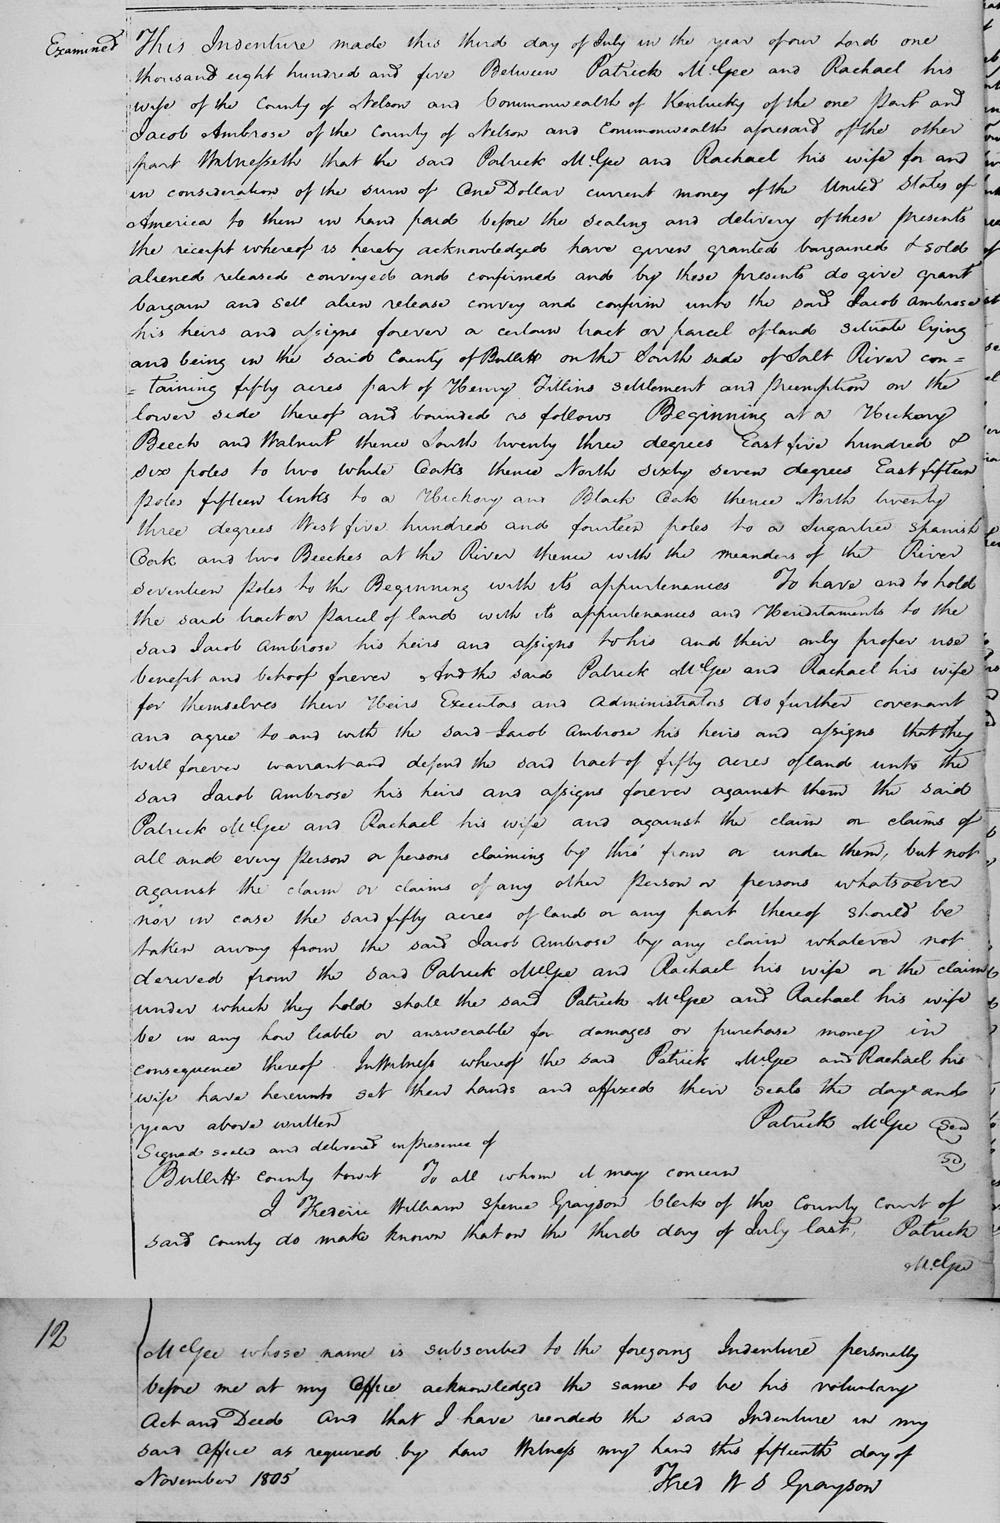 Examined
This Indenture made this third day of July in the year of our Lord one
thousand eight hundred and five Between Patrick McGee and Rachael his
wife of the County of Nelson and Commonwealth of Kentucky of the one part and
Jacob Ambrose of the County of Nelson and Commonwealth aforesaid of the other
part Witnesseth that the said Patrick McGee and Rachael his wife for and
in consideration of the sum of One Dollar current money of the United States of
America to them in hand paid before the sealing and delivery of these presents
the receipt whereof is hereby acknowledged have given granted bargained & sold
aliened released conveyed and confirmed and by these presents do give grant
bargain and sell alien release convey and confirm unto the said Jacob Ambrose
his heirs and assigns forever a certain tract or parcel of land situate lying
and being in the said County of Bullitt on the South side of Salt River con=
=taining fifty acres part of Henry Tillins settlement and preemption on the
lower side thereof and bounded as follows Beginning at a Hickory
Beech and Walnut thence South twenty three degrees East five hundred &
six poles to two white Oaks thence North sixty seven degrees East fifteen
poles fifteen links to a Hickory and Black Oak thence North twenty
three degrees West five hundred and fourteen poles to a Sugartree Spanish
Oak and two Beeches at the River thence with the meanders of the River
seventeen poles to the Beginning with its appurtenances To have and to hold
the said tract or parcel of land with its appurtenances and Heriditaments to the
said Jacob Ambrose his heirs and assigns to his and their only proper use
benefit and behoof forever And the said Patrick McGee and Rachael his wife
for themselves their Heirs Executors and Administrators do further covenant
and agree to and with the said Jacob Ambrose his heirs and assigns that they
will forever warrant and defend the said tract of fifty acres of land unto the
said Jacob Ambrose his heirs and assigns forever against them the said
Patrick McGee and Rachael his wife and against the claim or claims of
all and every person or persons claiming by thro' from or under them, but not
against the claim or claims of any other person or persons whatsoever
nor in case the said fifty acres of land or any part thereof should be
taken away from the said Jacob Ambrose by any claim whatever not
derived from the said Patrick McGee and Rachael his wife or the claim
under which they hold shall the said Patrick McGee and Rachael his wife
be in any how liable or answerable for damages or purchase money in
consequence thereof In Witness whereof the said Patrick McGee and Rachael his
wife have hereunto set their hands and affixed their seals the day and
year above written Patrick McGee Seal
Signed sealed and delivered in presence of
Bullitt County towit To all whom it may concern
I Frederic William Spence Grayson Clerk of the County Court of
said County do make known that on the third day of July last, Patrick
McGee
12
McGee whose name is subscribed to the foregoing Indenture personally
before me at my Office acknowledged the same to be his voluntary
Act and Deed And that I have recorded the said Indenture in my
said Office as required by Law Witness my hand this fifteenth day of
November 1805 Fred W S Grayson